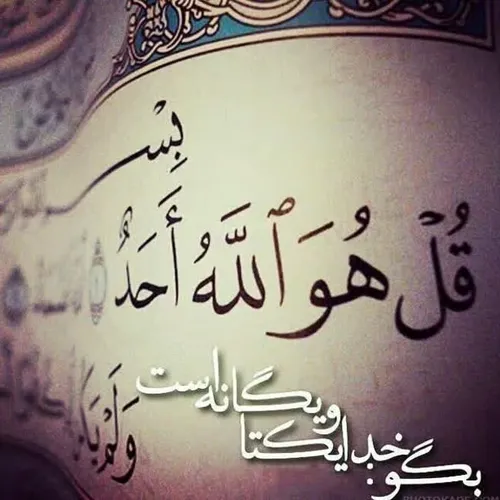 بِسْ
قُلْ هُوَ ٱللَّهُ أَحَدٌ ١
وَلَمْ يَكُ
بگو: خدا یکتا
و یگانه است